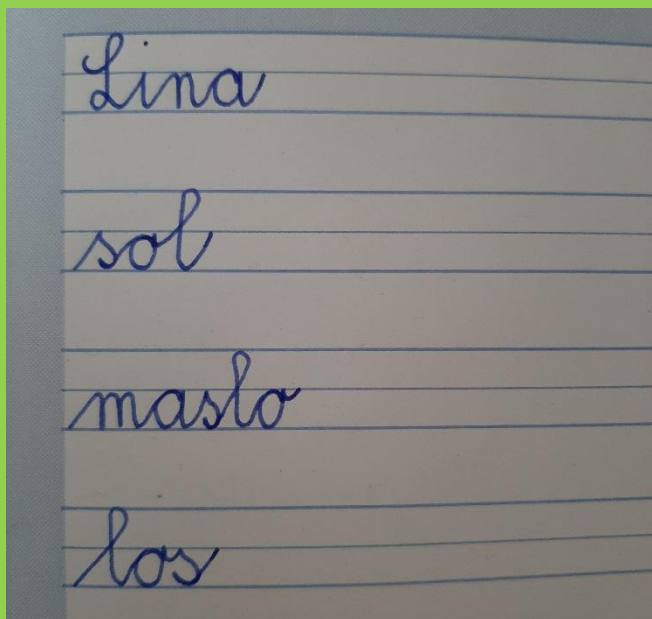 Lina
sol
maslo
los